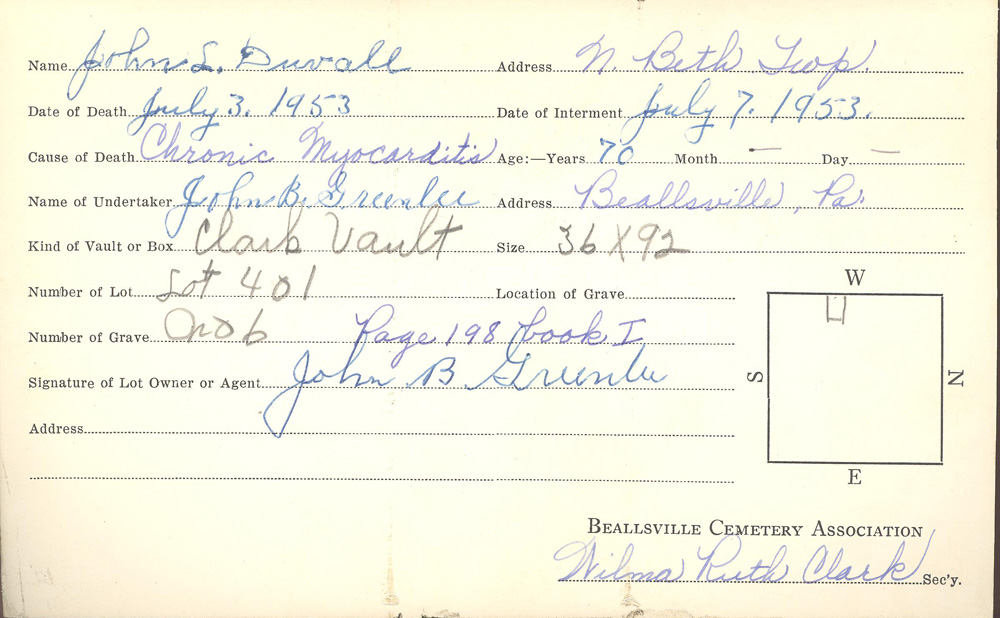 Name John L. Duvall Address N. Beth Twp.
Date of Death July 3. 1953 Date of Interment July 7. 1953.
Cause of Death Chronic Myocarditis Age:—Years 70 Month — Day —
Name of Undertaker John B. Greenlee Address Beallsville, Pa.
Kind of Vault or Box Clark Vault Size 36 X 92
Number of Lot Lot 401 Location of Grave
Number of Grave No 6 Page 198 book I
Signature of Lot Owner or Agent John B Greenlee
Address
W
S
N
E
BEALLSVILLE CEMETERY ASSOCIATION
Wilma Ruth Clark Sec'y.